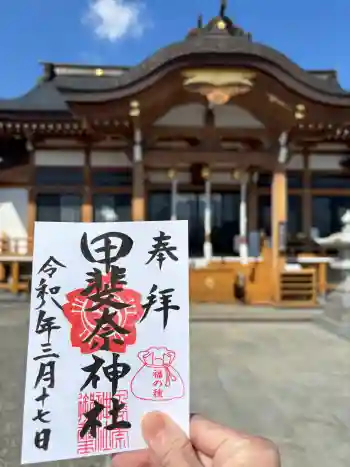 奉拝
甲斐奈神社
令和年三月十七日
福の種